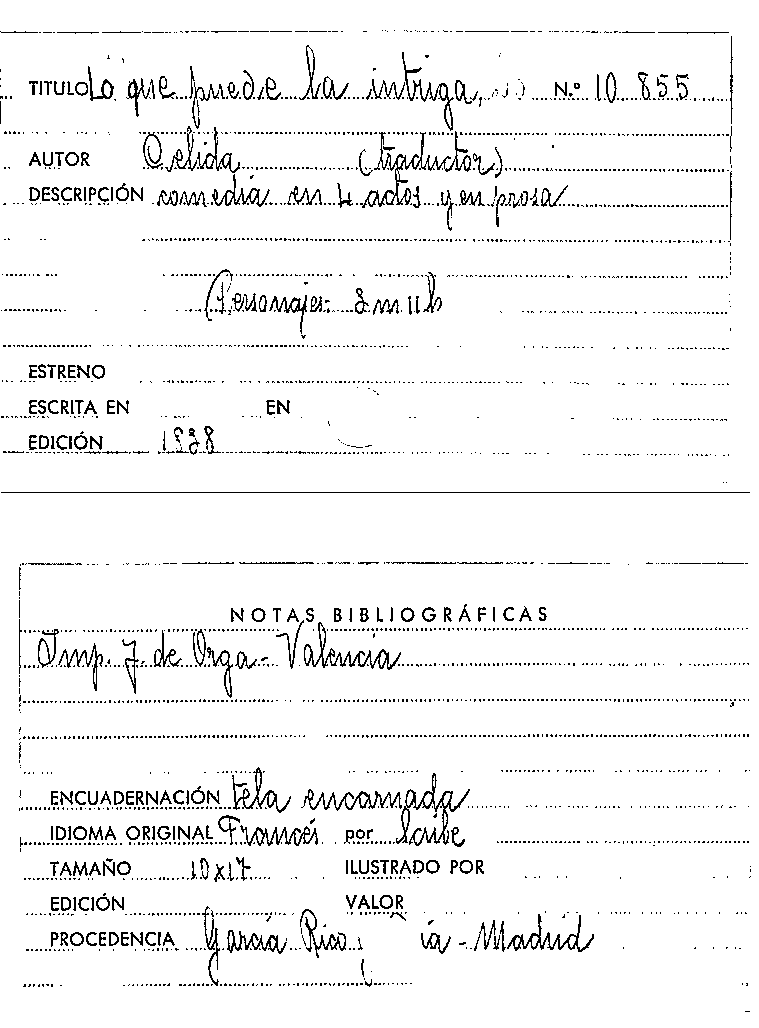 TITULO Lo que puede la intriga, N.º 10 855
AUTOR Oelida (traductor)
DESCRIPCIÓN comedia en 4 actos y en prosa
(Personajes: 8 m 11 h
ESTRENO
ESCRITA EN EN
EDICIÓN 1838
NOTAS BIBLIOGRÁFICAS
Imp. J. de Orga - Valencia
ENCUADERNACIÓN tela encarnada
IDIOMA ORIGINAL Francés por Scribe
TAMAÑO 10x17 ILUSTRADO POR
EDICIÓN VALOR
PROCEDENCIA García Rico - Madrid